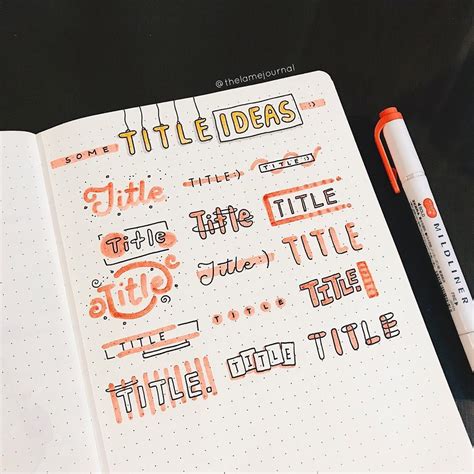 @thelamejournal
SOME TITLE IDEAS :)
Title TITLE:) TITLE:)
Title Title TITLE
Title Title:) TITLE
TITLE TITLE TITLE!
TITLE. TITLE TITLE
MILDLINER